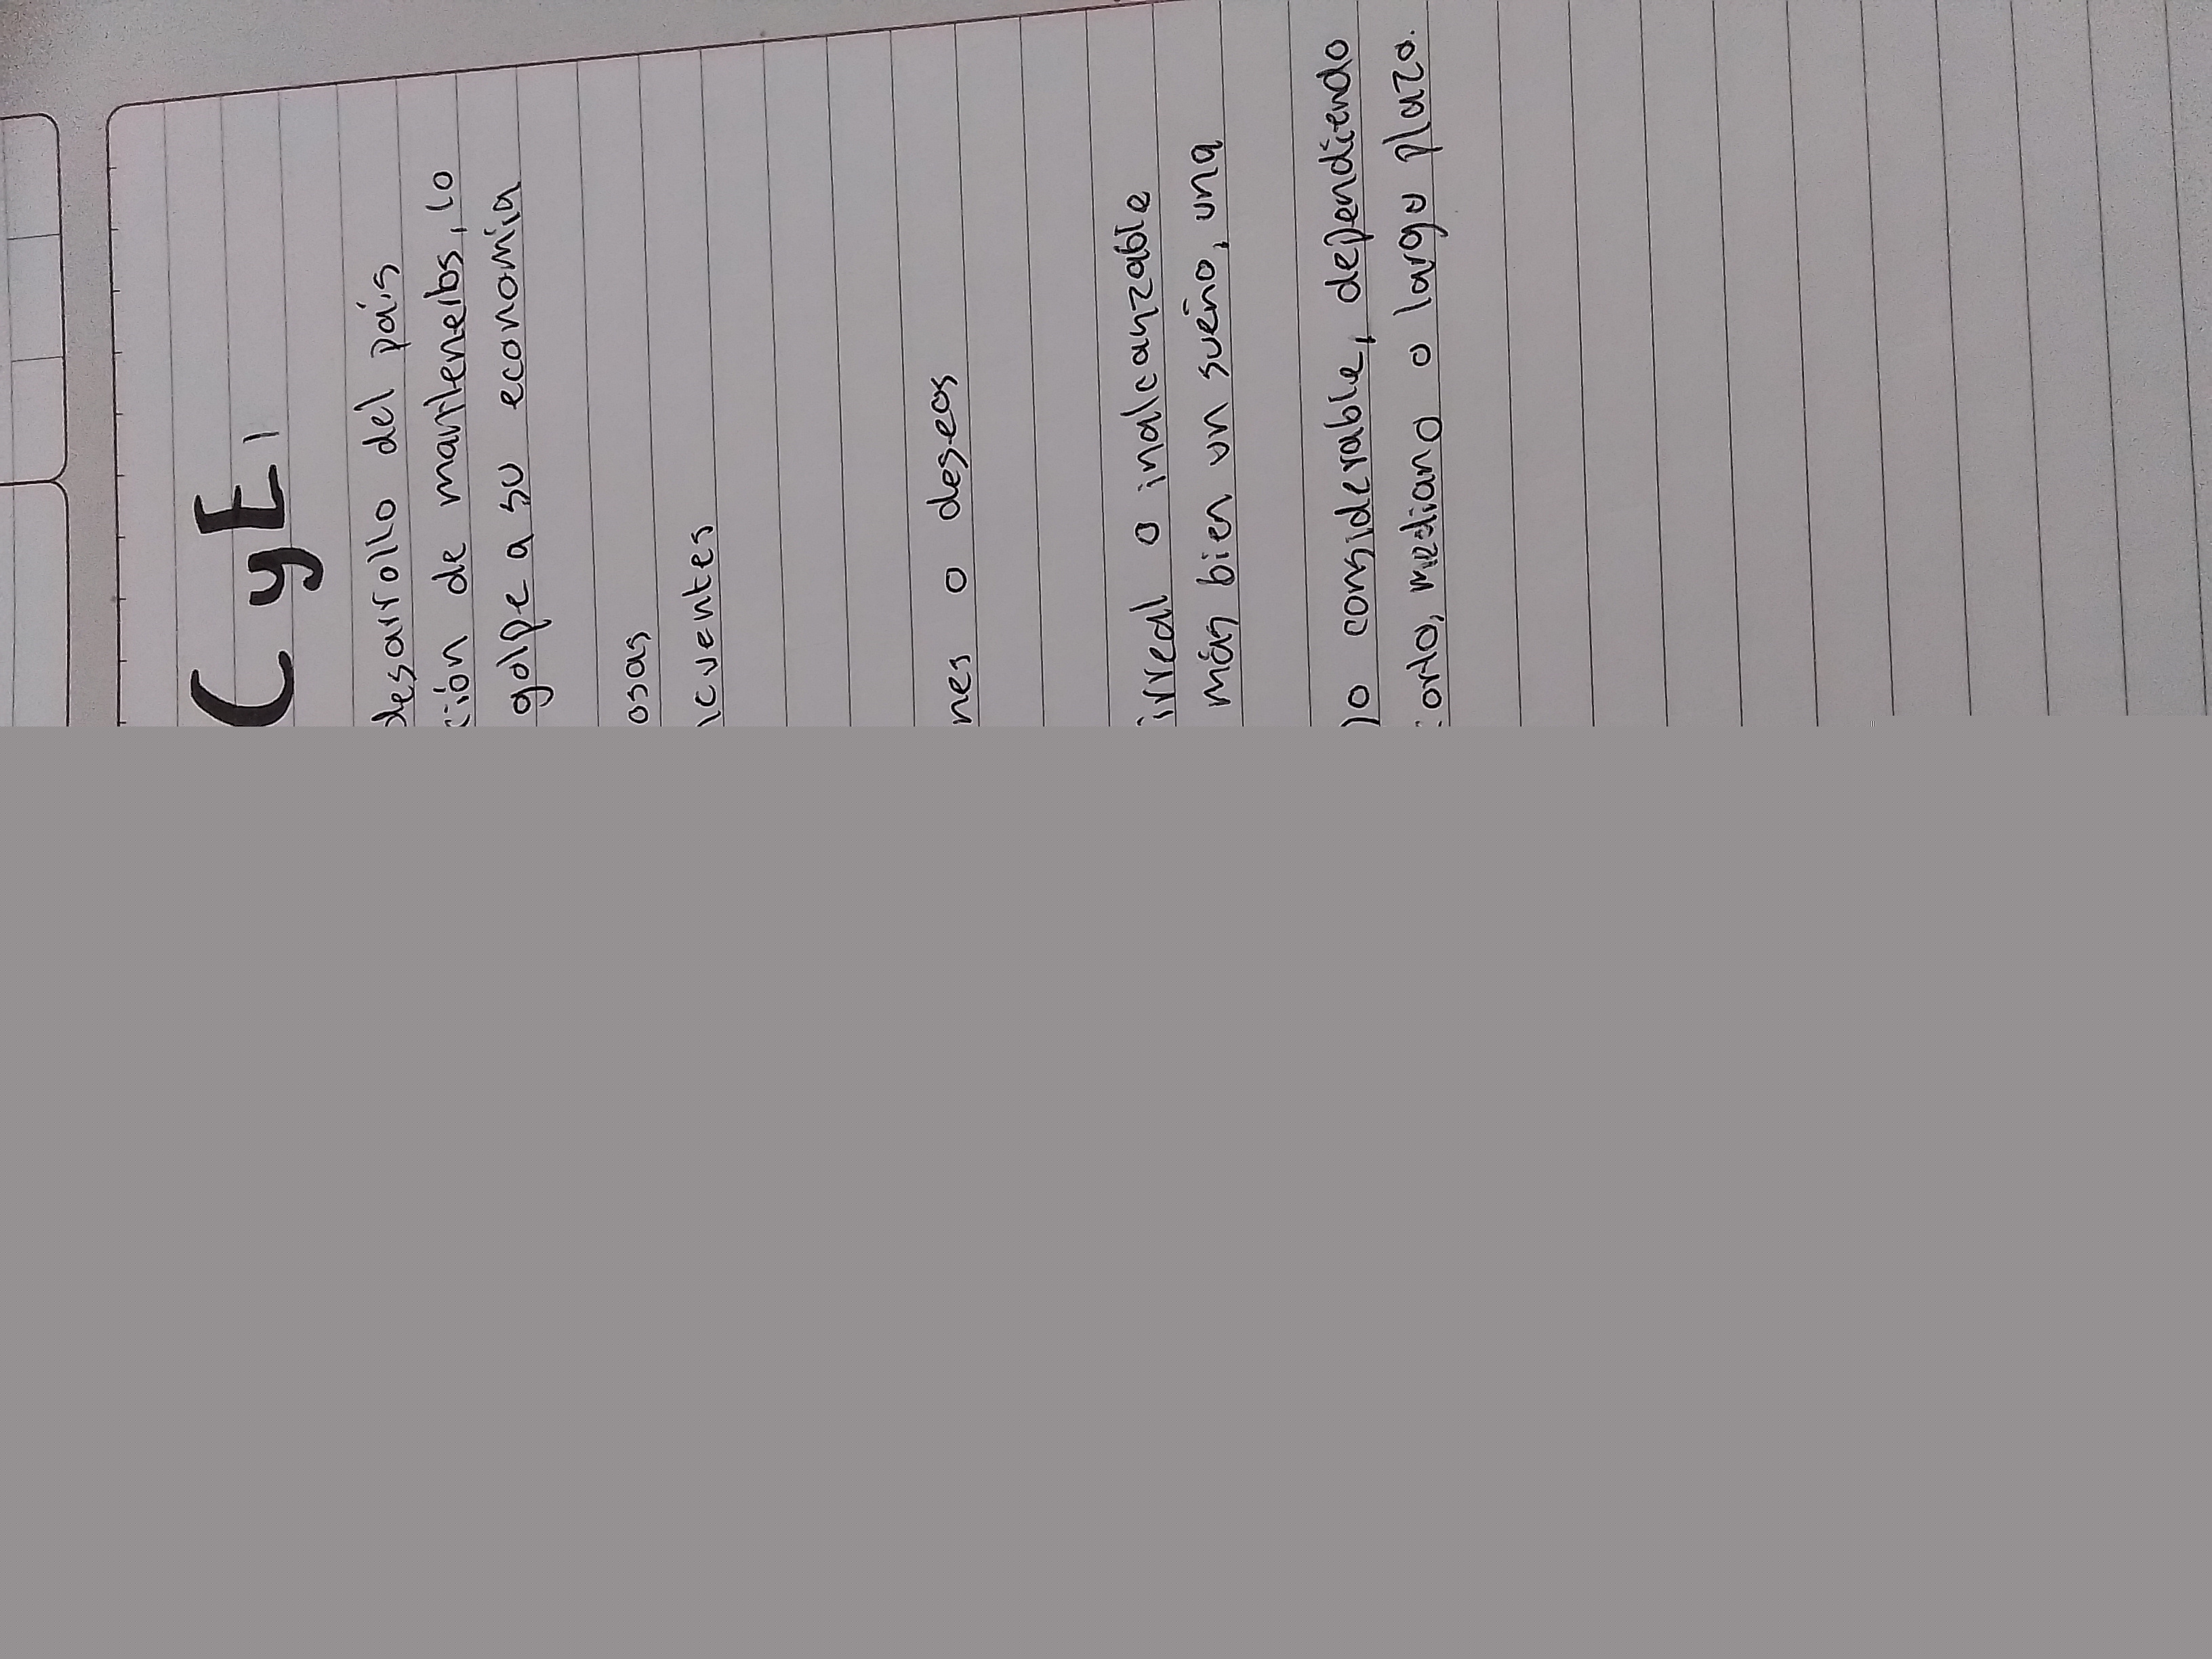 C y E
desarrollo del país
ción de mantenerlos, lo
golpe a su economía
osas
icuentes
nes o deseos
irreal o inalcanzable
más bien un sueño, una
lo considerable, dependiendo
orto, mediano o largo plazo.